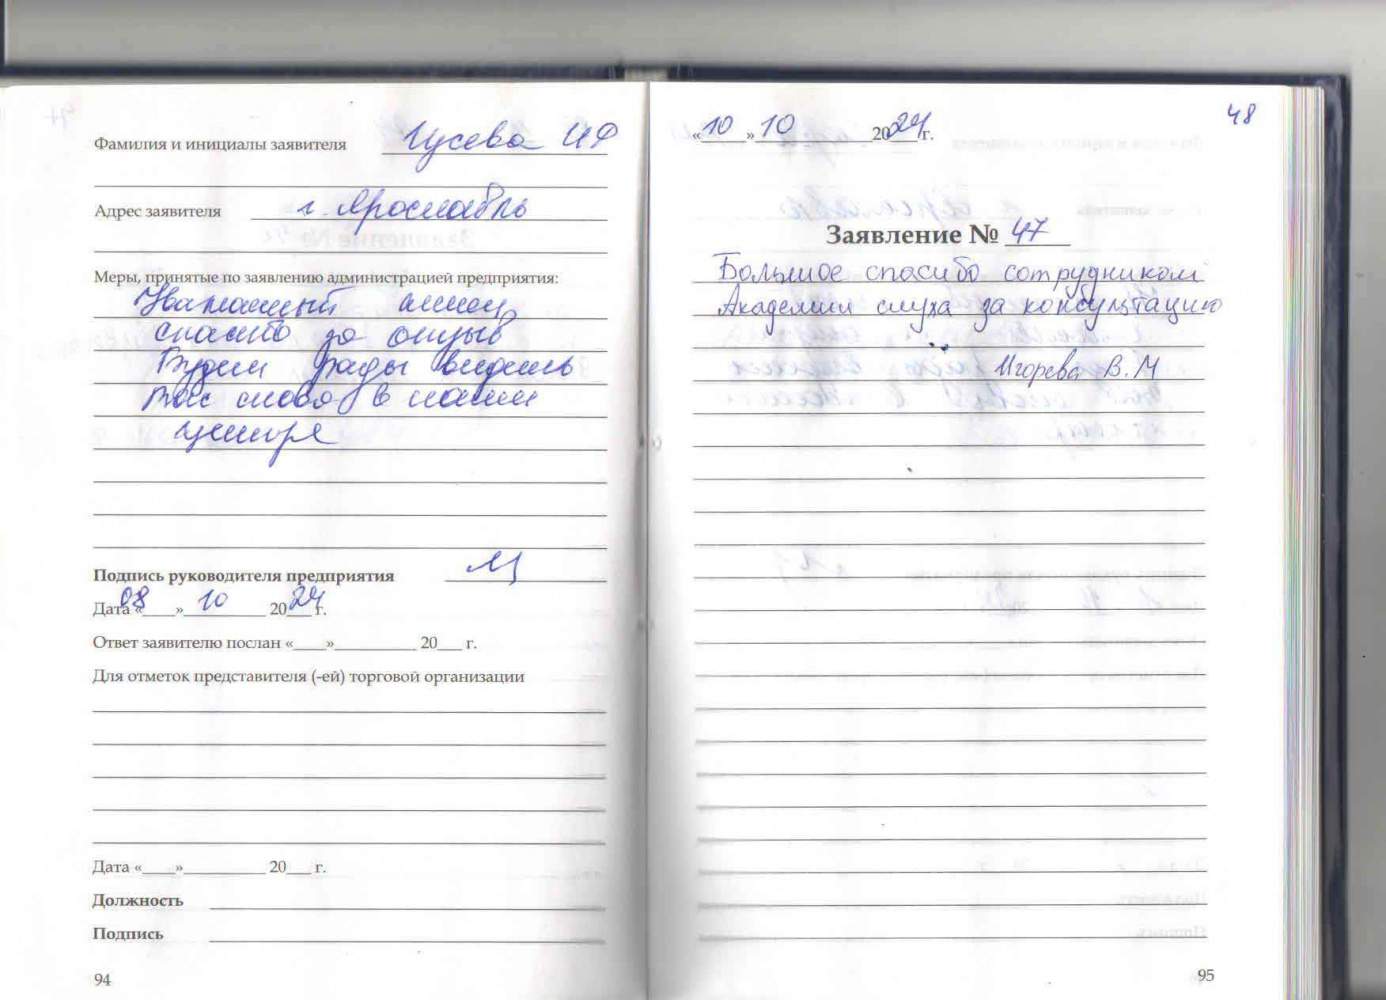 Фамилия и инициалы заявителя Гусева И Ф
Адрес заявителя г. Ярославль
Меры, принятые по заявлению администрацией предприятия:
спасибо за отзыв
Будем рады видеть
Вас снова в нашем
центре
Подпись руководителя предприятия
Дата «08» 10 2024 г.
Ответ заявителю послан «___»__________ 20___ г.
Для отметок представителя (-ей) торговой организации
Дата «____»__________ 20___ г.
Должность
Подпись
94
48
«10» 10 2024 г.
Заявление № 47
Большое спасибо сотрудникам
Академии слуха за консультацию
Игорева В.М
95